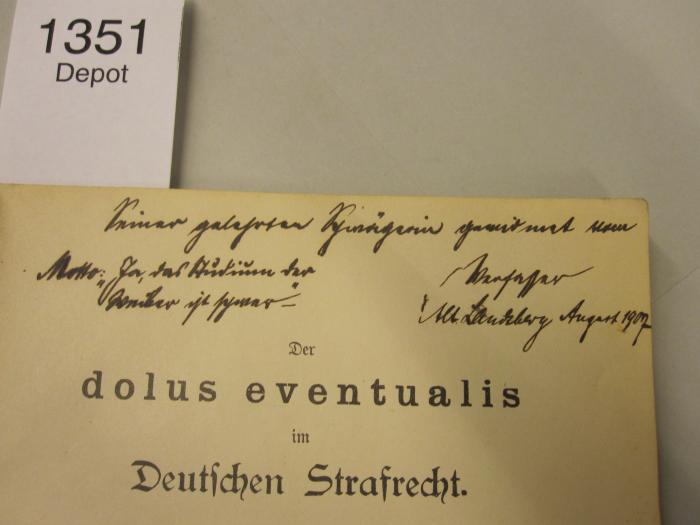 1351
Depot
Seiner gelehrten Schwägerin gewidmet vom
Motto: "Ja, das Studium der
Weiber ist schwer"
Verfasser
Alt Landsberg August 1907
Der
dolus eventualis
im
Deutſchen Strafrecht.